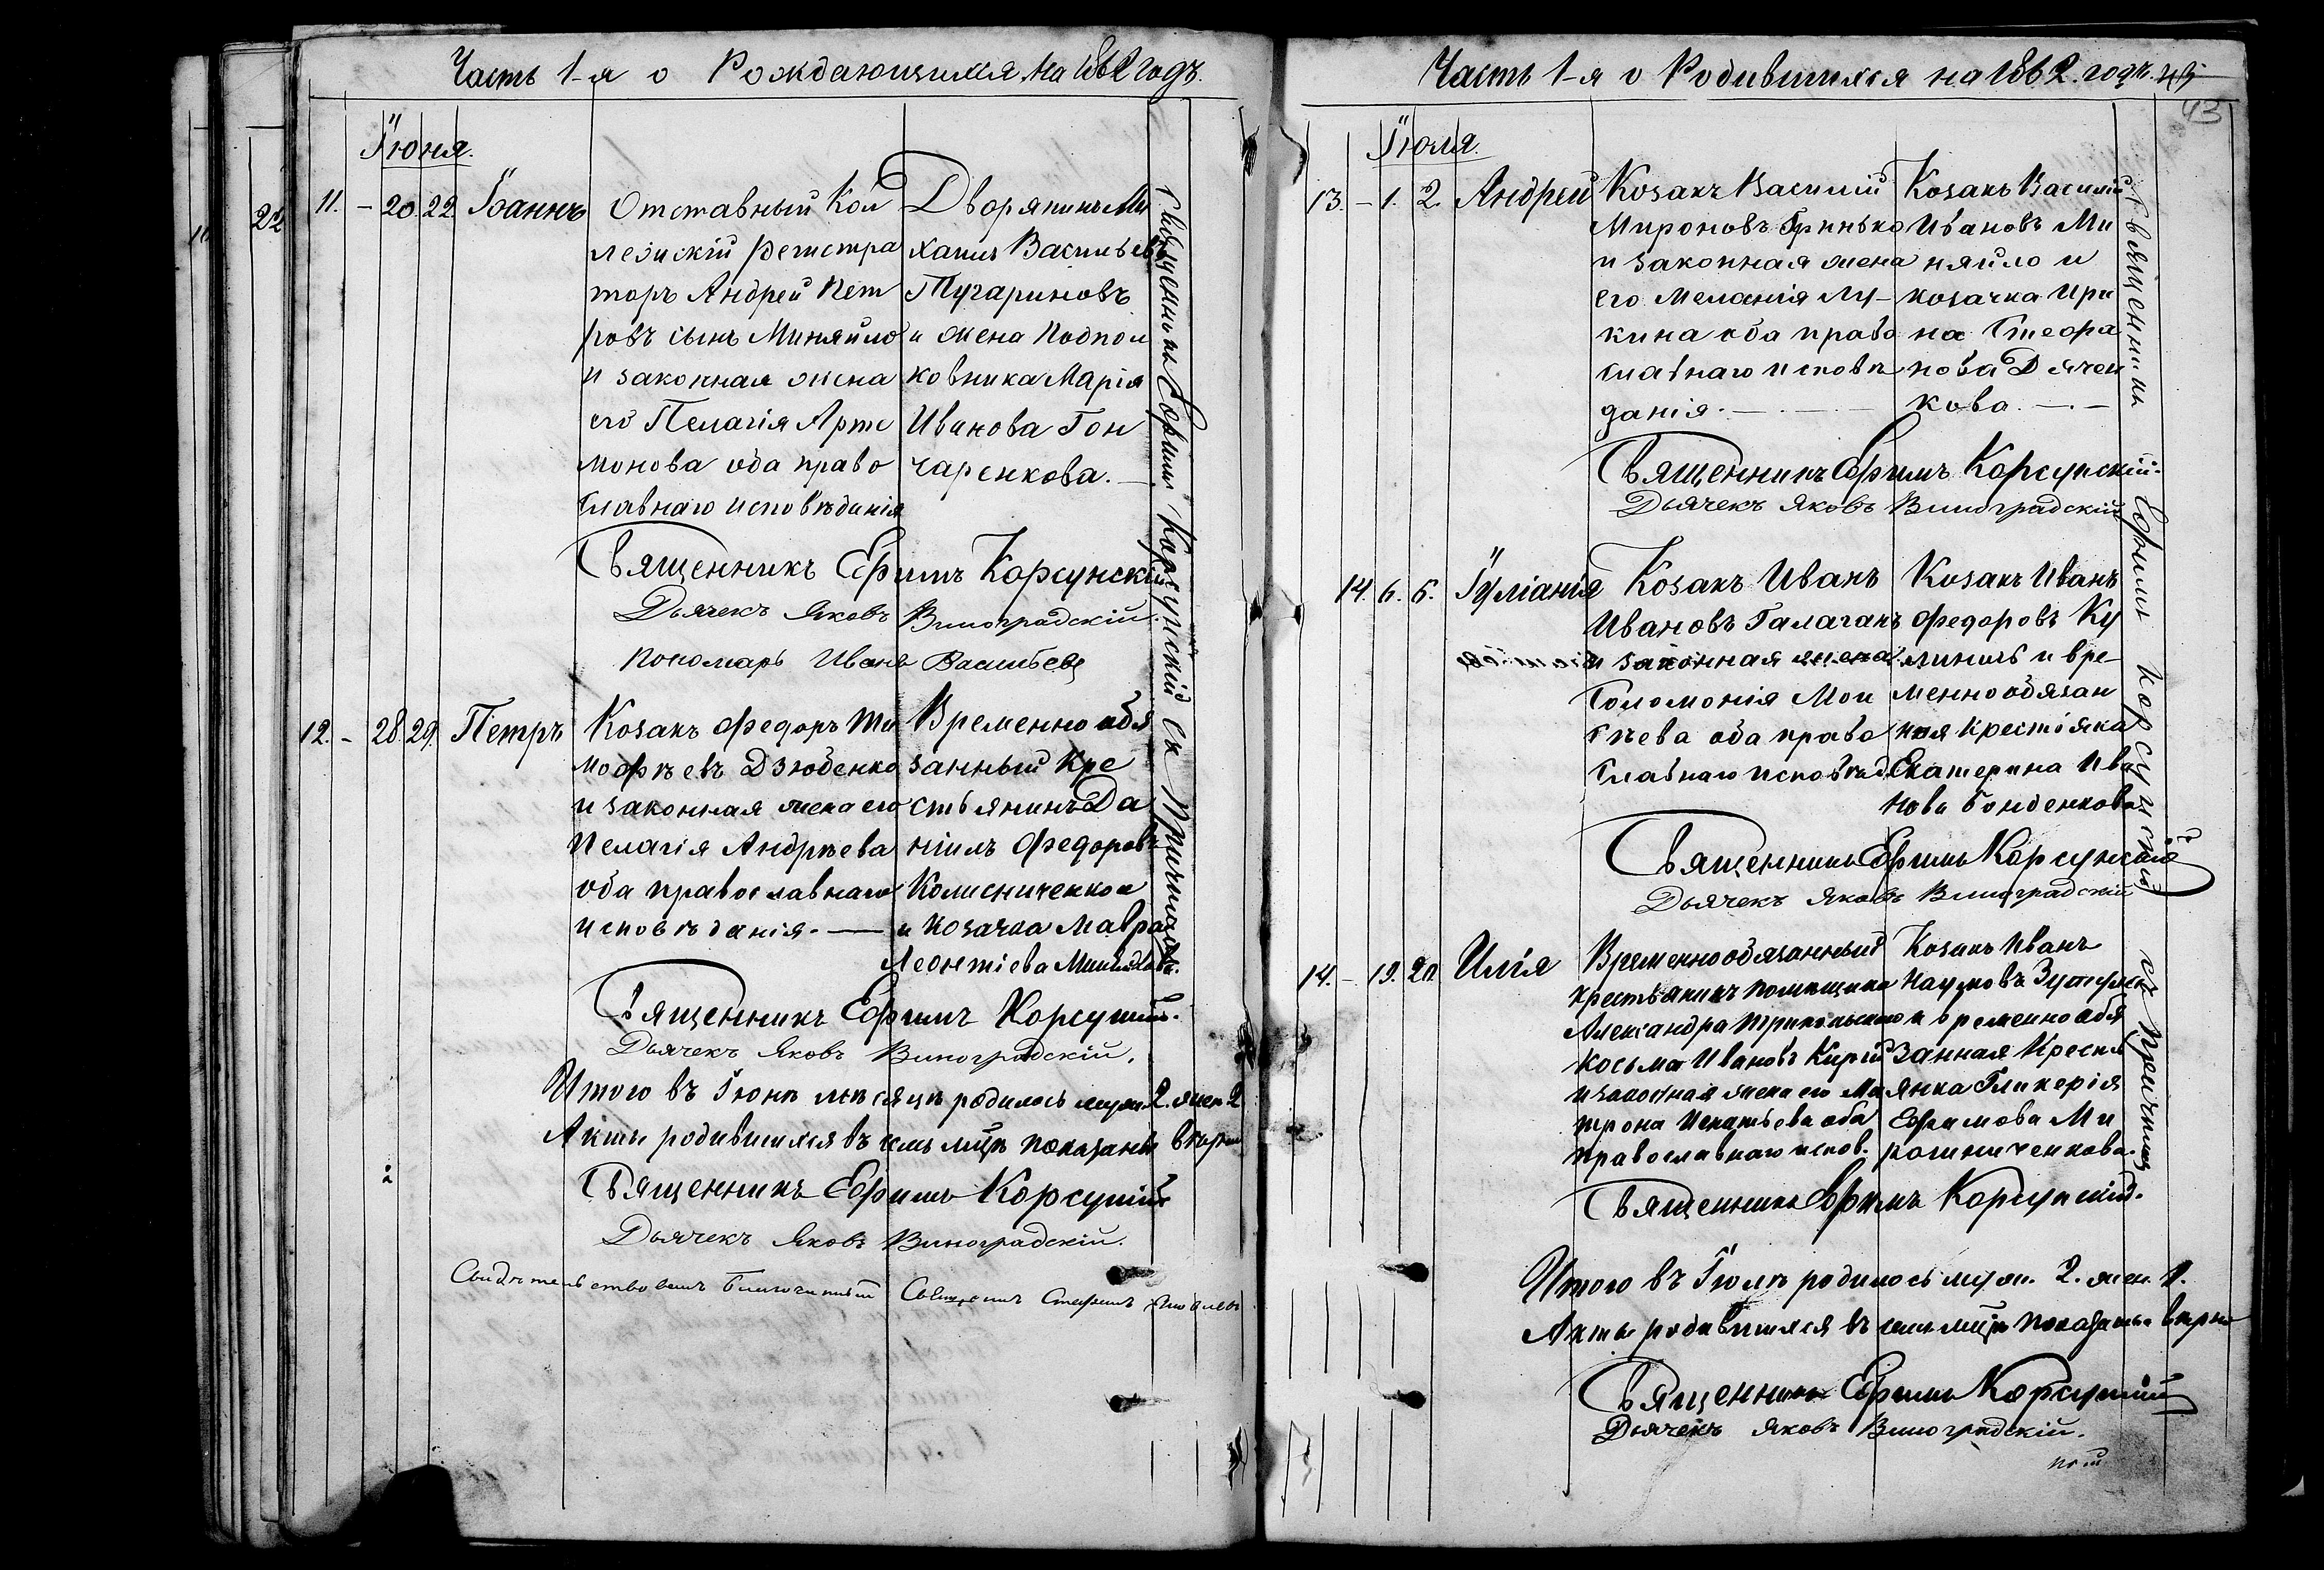 Часть 1-я о Рождающихся на 1862 годъ.
Іюня.
22
11. - 20. 22. Іоаннъ
Отставный Кол
лезскій Регистра
торъ Андрей Пет
ровъ сынъ Миняйло
и законная жена
его Пелагія Арте
монова оба право
славнаго исповѣданія
Дворянинъ Ми
хаилъ Васильевъ
Тугариновъ
и жена Подпол
ковника Марія
Иванова Гон
чаренкова.
Священникъ Ефимъ Корсунскій съ причтомъ
Священникъ Ефимъ Корсунскій
Дьячекъ Яковъ Виноградскій.
Пономарь Иванъ Васильевъ
12. - 28. 29. Петръ
Козакъ Федоръ Ти
мофѣевъ Дзюбенко
и законная жена его
Пелагія Андрѣева
оба православнаго
исповѣданія.
Временно обя
занный Кре
стьянинъ Да
ніилъ Федоровъ
Колисниченко
и козачка Мавра
Леонтіева
Священникъ Ефимъ Корсунскій.
Дьячекъ Яковъ Виноградскій.
Итого въ Іюнѣ мѣсяцѣ родилось муж. 2. жен. 2
Акты родившихся въ семъ мцѣ показаны вѣрно
Священникъ Ефимъ Корсунскій
Дьячекъ Яковъ Виноградскій.
Свидѣтельствовалъ Благочинный Священникъ Стефанъ
Часть 1-я о Родившихся на 1862. годъ.
43
Іюля.
13. - 1. 2. Андрей
Козакъ Василій
Мироновъ Гринько
и законная жена
его Меланія Лу-
кина оба право
славнаго исповѣ
данія.
Козакъ Василій
Ивановъ Ми
няйло и
козачка Ири
на Стефа
нова Дячен
кова.
Священникъ Ефимъ Корсунскій съ причтомъ
Священникъ Ефимъ Корсунскій.
Дьячекъ Яковъ Виноградскій
14. 6. 6. Іуліанія
Козакъ Иванъ
Ивановъ Галаганъ
и законная жена
Соломонія Мои
сѣева оба право
славнаго исповѣд.
Козакъ Иванъ
Федоровъ Ку
линичъ и вре-
менно обязан
ная Крестіянка
Екатерина Ива
нова Бонденкова
Священникъ Ефимъ Корсунскій
Дьячекъ Яковъ Виноградскій
14. - 19. 20. Илія
Временно обязанный
крестьянинъ помѣщика
Александра
Косьма Ивановъ Кирій
и законная жена его Ма
трона Игнатьева оба
православнаго испов.
Козакъ Иванъ
Наумовъ
и временно обя
занная Кресть
янка Гликерія
Ефимова Ми
рошниченкова.
Священникъ Ефимъ Корсунскій.
Итого въ Іюлѣ родилось муж. 2. жен. 1.
Акты родившихся въ семъ мцѣ показаны вѣрно
Священникъ Ефимъ Корсунскій
Дьячекъ Яковъ Виноградскій.